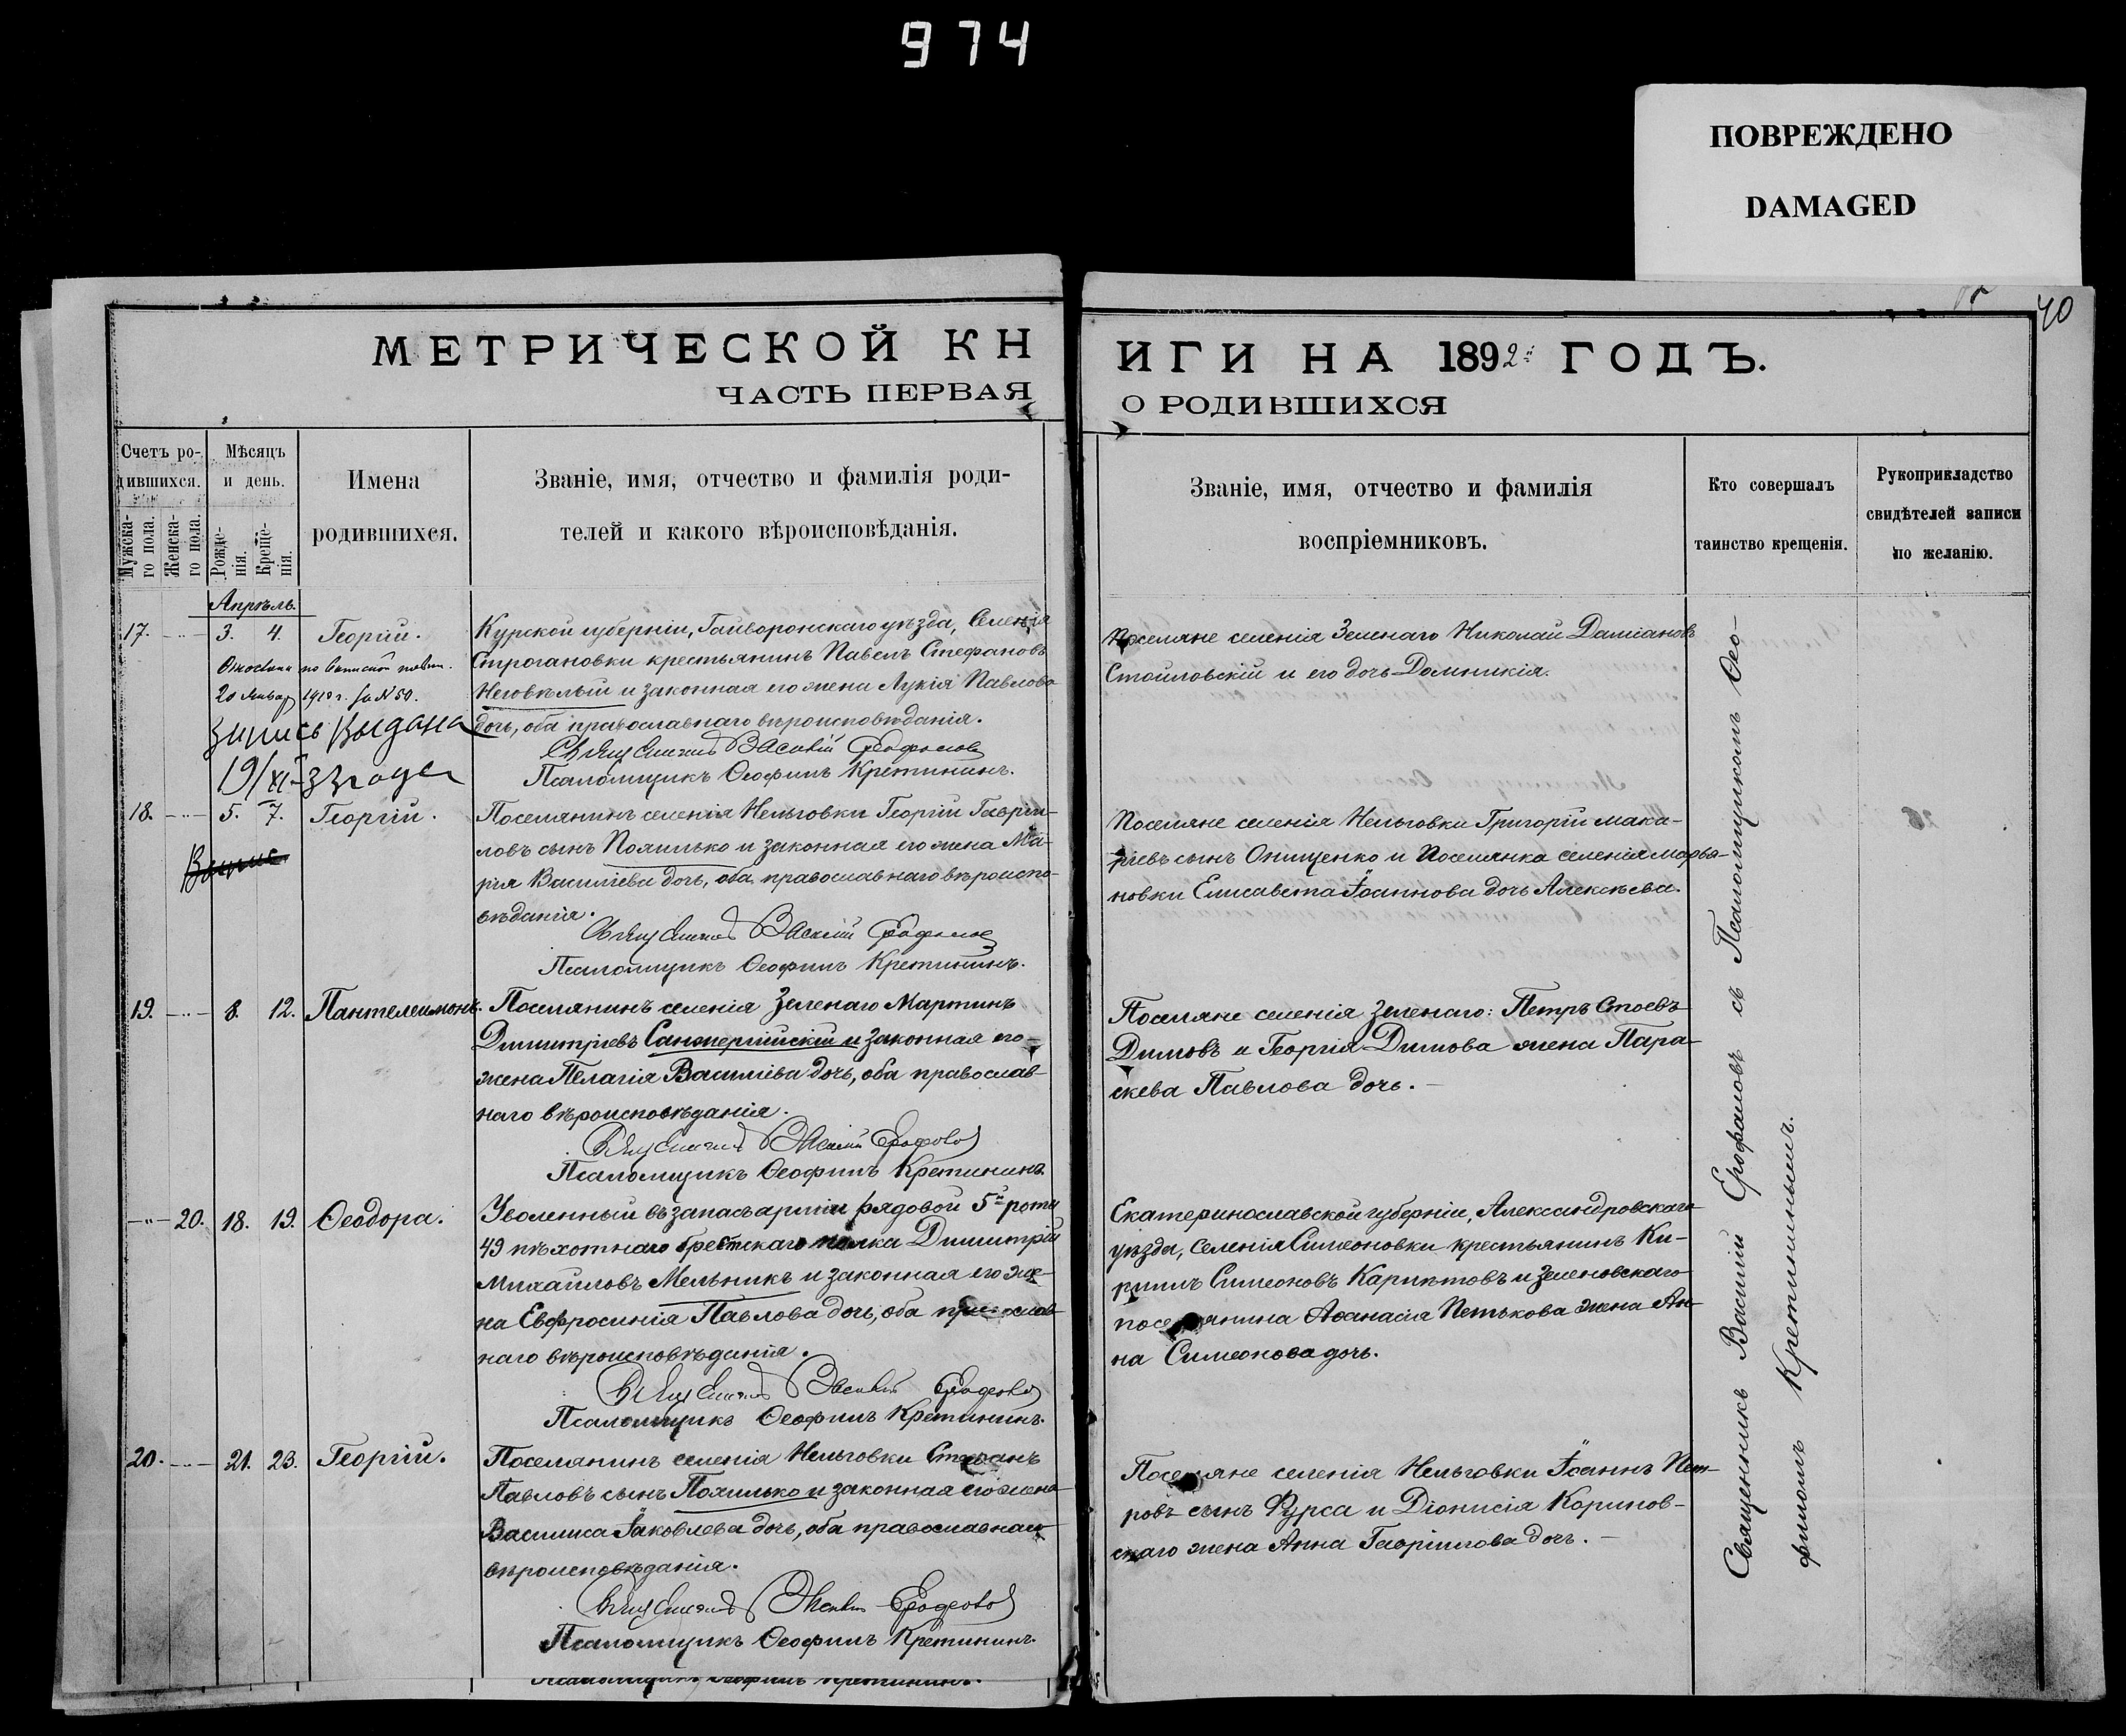 974
ПОВРЕЖДЕНО
DAMAGED
40
МЕТРИЧЕСКОЙ КН
ИГИ НА 1892й ГОДЪ.
ЧАСТЬ ПЕРВАЯ
О РОДИВШИХСЯ
Счетъ ро-
дившихся.
Мужска-
го пола.
Женска-
го пола.
Мѣсяцъ
и день.
Рожде-
нія.
Креще-
нія.
Имена
родившихся.
Званіе, имя, отчество и фамилія роди-
телей и какого вѣроисповѣданія.
Званіе, имя, отчество и фамилія
воспріемниковъ.
Кто совершалъ
таинство крещенія.
Рукоприкладство
свидѣтелей записи
по желанію.
Апрѣль.
17. -"- 3. 4. Георгій.
20 1910 г. за № 50.
19/XI-33 года
Курской губерніи, Гайворонскаго уѣзда, Селенія
Строгановки крестьянинъ Павелъ Стефановъ
и законная его жена Лукія Павлова
дочь, оба православнаго вѣроисповѣданія.
Священникъ Василій Ерофаловъ
Псаломщикъ Ѳеофилъ Кретининъ.
Поселяне селенія Зеленаго Николай Даміановъ
Стоиловскій и его дочь Домникія.
18. -"- 5. 7. Георгій.
Поселянинъ селенія Нельговки Георгій Гавріи-
ловъ сынъ Похилько и законная его жена Ма-
рія Василіева дочь, оба православнаго вѣроиспо-
вѣданія.
Священникъ Василій Ерофаловъ
Псаломщикъ Ѳеофилъ Кретининъ.
Поселяне селенія Нельговки Григорій Мака-
ріевъ сынъ Онищенко и Поселянка селенія Марья-
новки Елисавета Іоаннова дочь Алексѣева.
19. -"- 8. 12. Пантелеимонъ.
Поселянинъ селенія Зеленаго Мартинъ
Димитріевъ и законная его
жена Пелагія Василіева дочь, оба православ-
наго вѣроисповѣданія.
Священникъ Василій Ерофаловъ
Псаломщикъ Ѳеофилъ Кретининъ.
Поселяне селенія Зеленаго: Петръ Стоевъ
Димовъ и Георгія Димова жена Пара-
скева Павлова дочь. -
-"- 20. 18. 19. Ѳеодора.
Уволенный въ запасъ арміи рядовой 5й роты
49 пѣхотнаго Брестскаго полка Димитрій
Михаиловъ Мельникъ и законная его же-
на Евфросинія Павлова дочь, оба православ-
наго вѣроисповѣданія.
Священникъ Василій Ерофаловъ
Псаломщикъ Ѳеофилъ Кретининъ.
Екатеринославской губерніи, Александровскаго
уѣзда, селенія Симеоновки крестьянинъ Ки-
риллъ Симеоновъ и Зеленовскаго
поселянина Аѳанасія Петькова жена Ан-
на Симеонова дочь.
20. -"- 21. 23. Георгій.
Поселянинъ селенія Нельговки Стефанъ
Павловъ сынъ Похилько и законная его жена
Василиса Іаковлева дочь, оба православнаго
вѣроисповѣданія.
Священникъ Василій Ерофаловъ
Псаломщикъ Ѳеофилъ Кретининъ.
Поселяне селенія Нельговки Іоаннъ Пет-
ровъ сынъ Фурса и Діонисія Коринов-
скаго жена Анна Гавріилова дочь. -
Священникъ Василій Ерофаловъ съ Псаломщикомъ Ѳео-
филомъ Кретининымъ.
Псаломщикъ Ѳеофилъ Кретининъ.